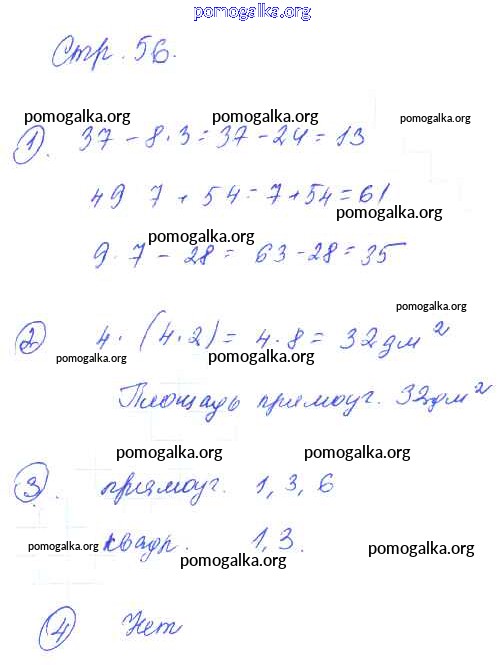 pomogalka.org
Стр. 56.
pomogalka.org pomogalka.org pomogalka.org
1). 37 - 8 · 3 = 37 - 24 = 13
49 7 + 54 = 7 + 54 = 61
pomogalka.org
pomogalka.org
9 · 7 - 28 = 63 - 28 = 35
pomogalka.org
2) 4 · (4 · 2) = 4 · 8 = 32 дм²
pomogalka.org pomogalka.org
Площадь прямоуг. 32 дм²
pomogalka.org pomogalka.org
3). прямоуг. 1, 3, 6
квадр. 1, 3.
pomogalka.org pomogalka.org pomogalka.org
4) Нет